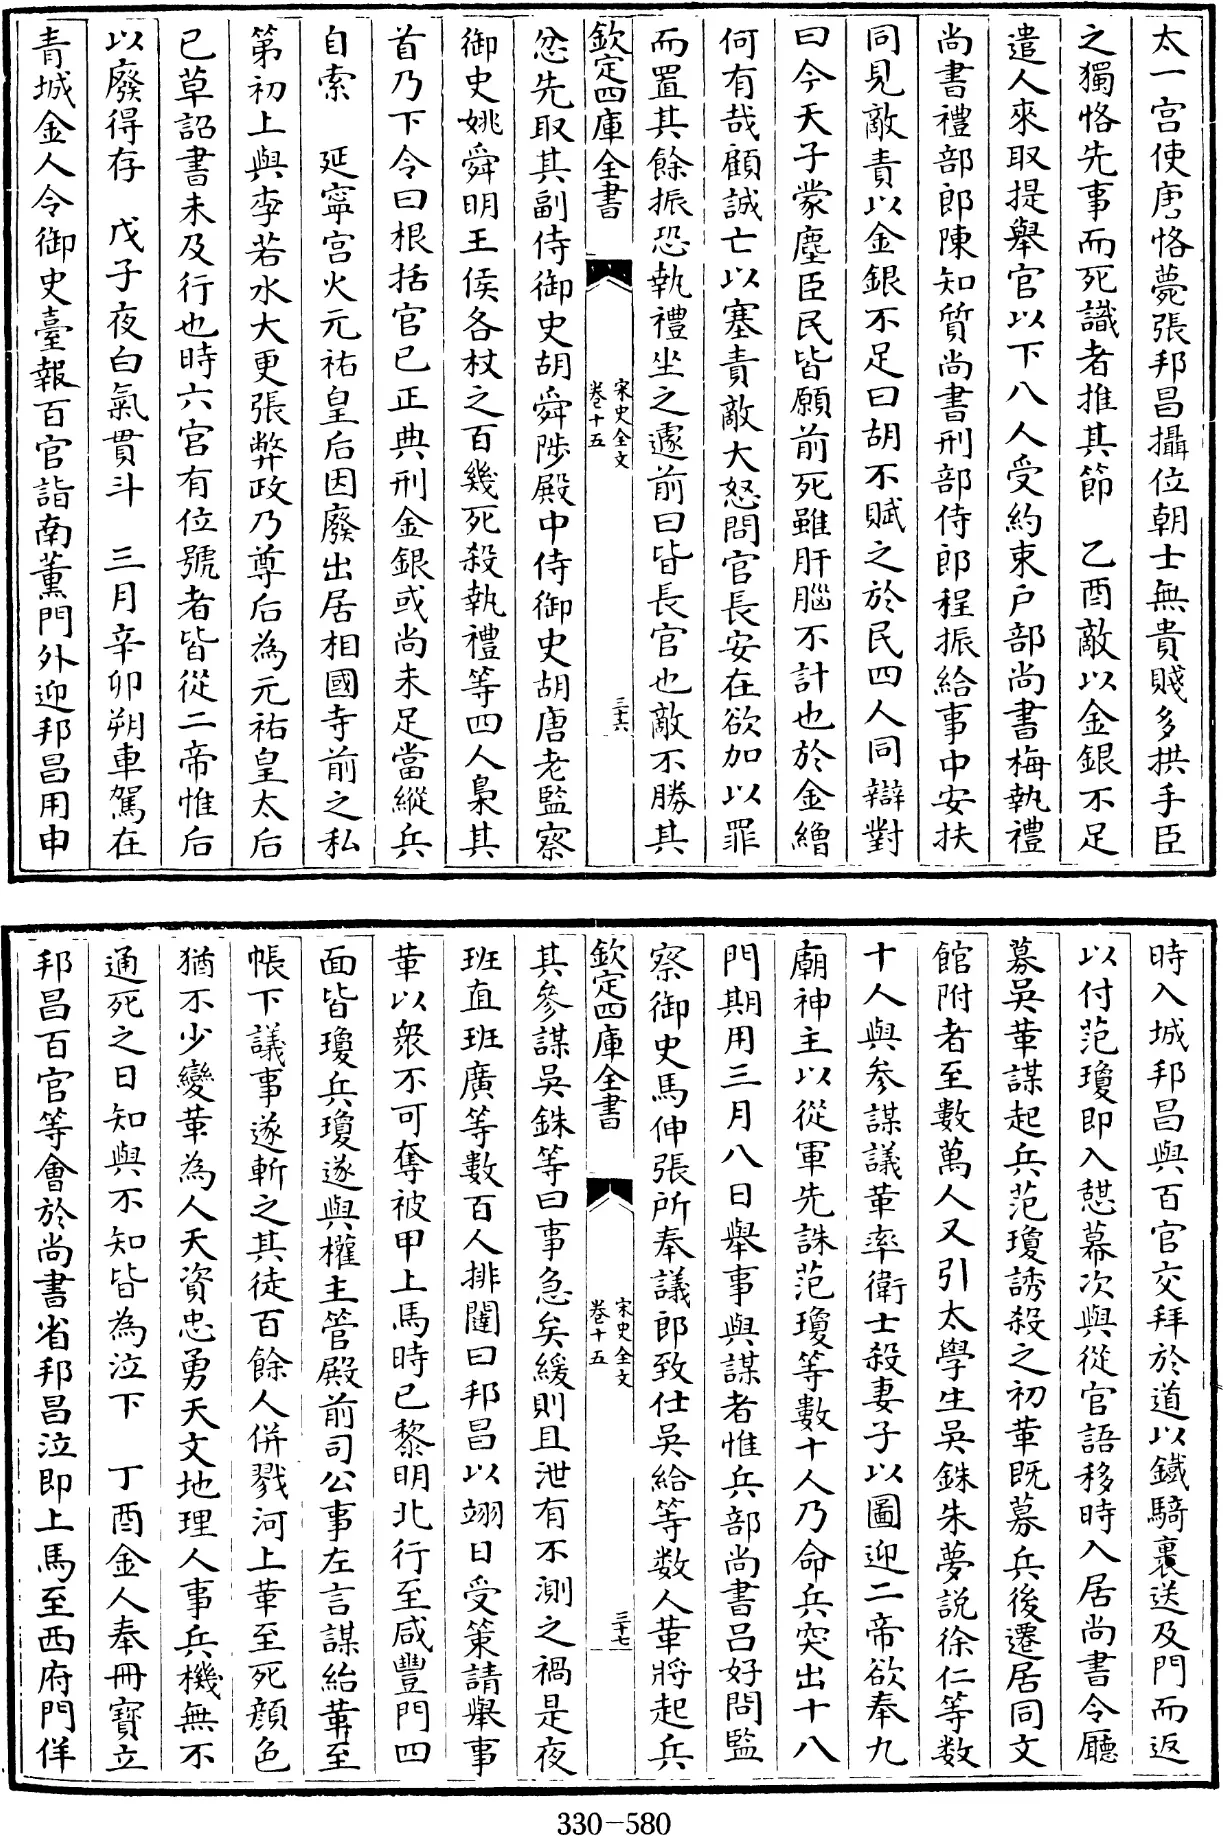 太一宫使唐恪薨張邦昌攝位朝士無貴賤多拱手臣
之獨恪先事而死識者推其節　乙酉敵以金銀不足
遣人來取提舉官以下八人受約束户部尚書梅執禮
尚書禮部郎陳知質尚書刑部侍郎程振給事中安扶
同見敵責以金銀不足曰胡不賦之於民四人同辯對
曰今天子蒙塵臣民皆願前死雖肝腦不計也於金繒
何有哉顧誠亡以塞責敵大怒問官長安在欲加以罪
而置其餘振恐執禮坐之遽前曰皆長官也敵不勝其
欽定四庫全書
宋史全文
卷十五
三十六
忿先取其副侍御史胡舜陟殿中侍御史胡唐老監察
御史姚舜明王俟各杖之百幾死殺執禮等四人梟其
首乃下令曰根括官已正典刑金銀或尚未足當縱兵
自索　延寧宫火元祐皇后因廢出居相國寺前之私
第初上與李若水大更張弊政乃尊后為元祐皇太后
已草詔書未及行也時六宫有位號者皆從二帝惟后
以廢得存　戊子夜白氣貫斗　三月辛卯朔車駕在
青城金人令御史臺報百官詣南薰門外迎邦昌用申
時入城邦昌與百官交拜於道以鐵騎裹送及門而返
以付范瓊即入憇幕次與從官語移時入居尚書令廳
募吳革謀起兵范瓊誘殺之初革既募兵後遷居同文
館附者至數萬人又引太學生吳銖朱夢説徐仁等數
十人與參謀議革率衛士殺妻子以圖迎二帝欲奉九
廟神主以從軍先誅范瓊等數十人乃命兵突出十八
門期用三月八日舉事與謀者惟兵部尚書吕好問監
察御史馬伸張所奉議郎致仕吳給等数人革將起兵
欽定四庫全書
宋史全文
卷十五
三十七
其參謀吳銖等曰事急矣緩則且泄有不測之禍是夜
班直班廣等數百人排闥曰邦昌以翊日受策請舉事
革以衆不可奪被甲上馬時已黎明北行至咸豐門四
面皆瓊兵瓊遂與權主管殿前司公事左言謀紿革至
帳下議事遂斬之其徒百餘人併戮河上革至死顔色
猶不少變革為人天資忠勇天文地理人事兵機無不
通死之日知與不知皆為泣下　丁酉金人奉冊寶立
邦昌百官等會於尚書省邦昌泣即上馬至西府門佯
330-580